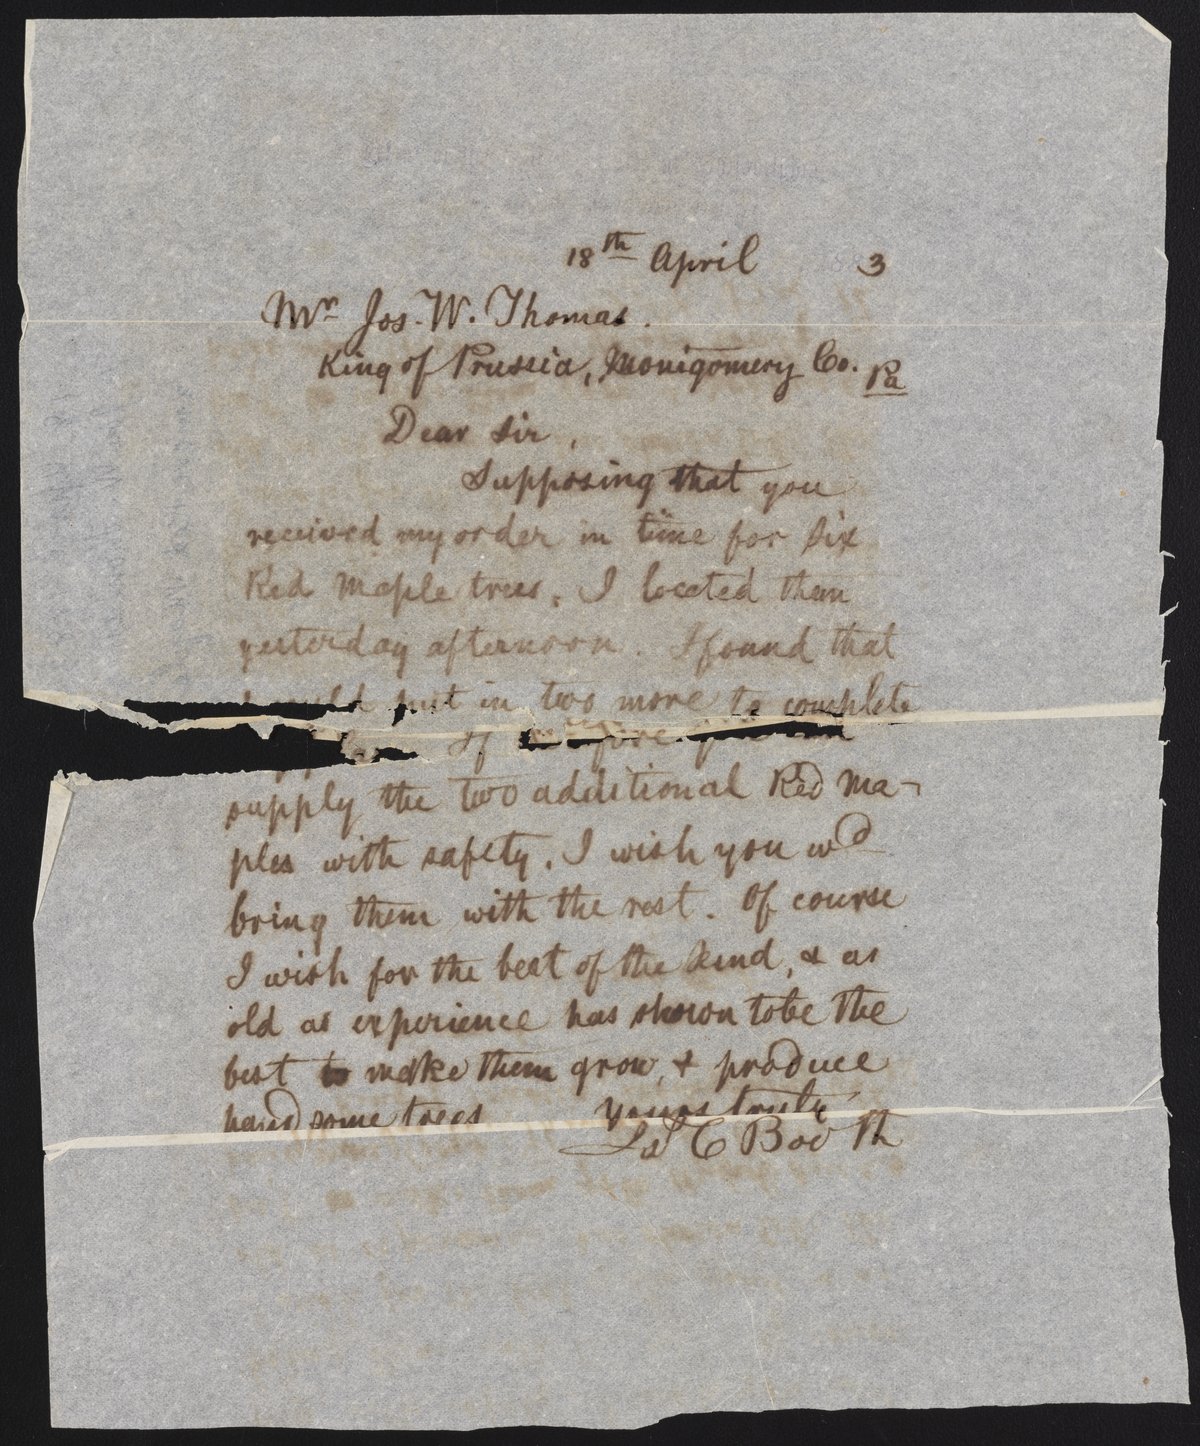 18th April 3
Mr Jos. W. Thomas.
King of Prussia, Montgomery Co. Pa
Dear Sir,
Supposing that you
received my order in time for six
Red Maple trees, I located them
yesterday afternoon. I found that
put in two more to complete
If
supply the two additional Red Ma-
ples with safety, I wish you wd
bring them with the rest. Of course
I wish for the best of the kind, & as
old as experience has shown to be the
best to make them grow, & produce
handsome trees Yours truly
Jas C Booth